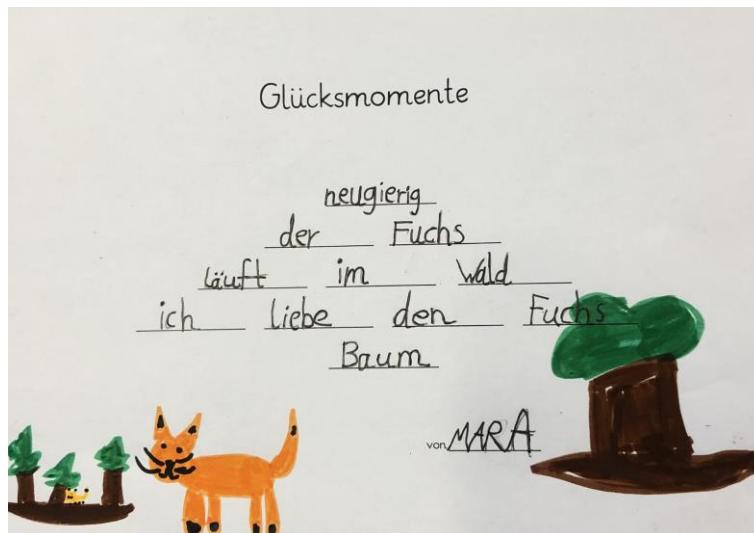 Glücksmomente
neugierig
der Fuchs
läuft im Wald
ich liebe den Fuchs
Baum
von MARA